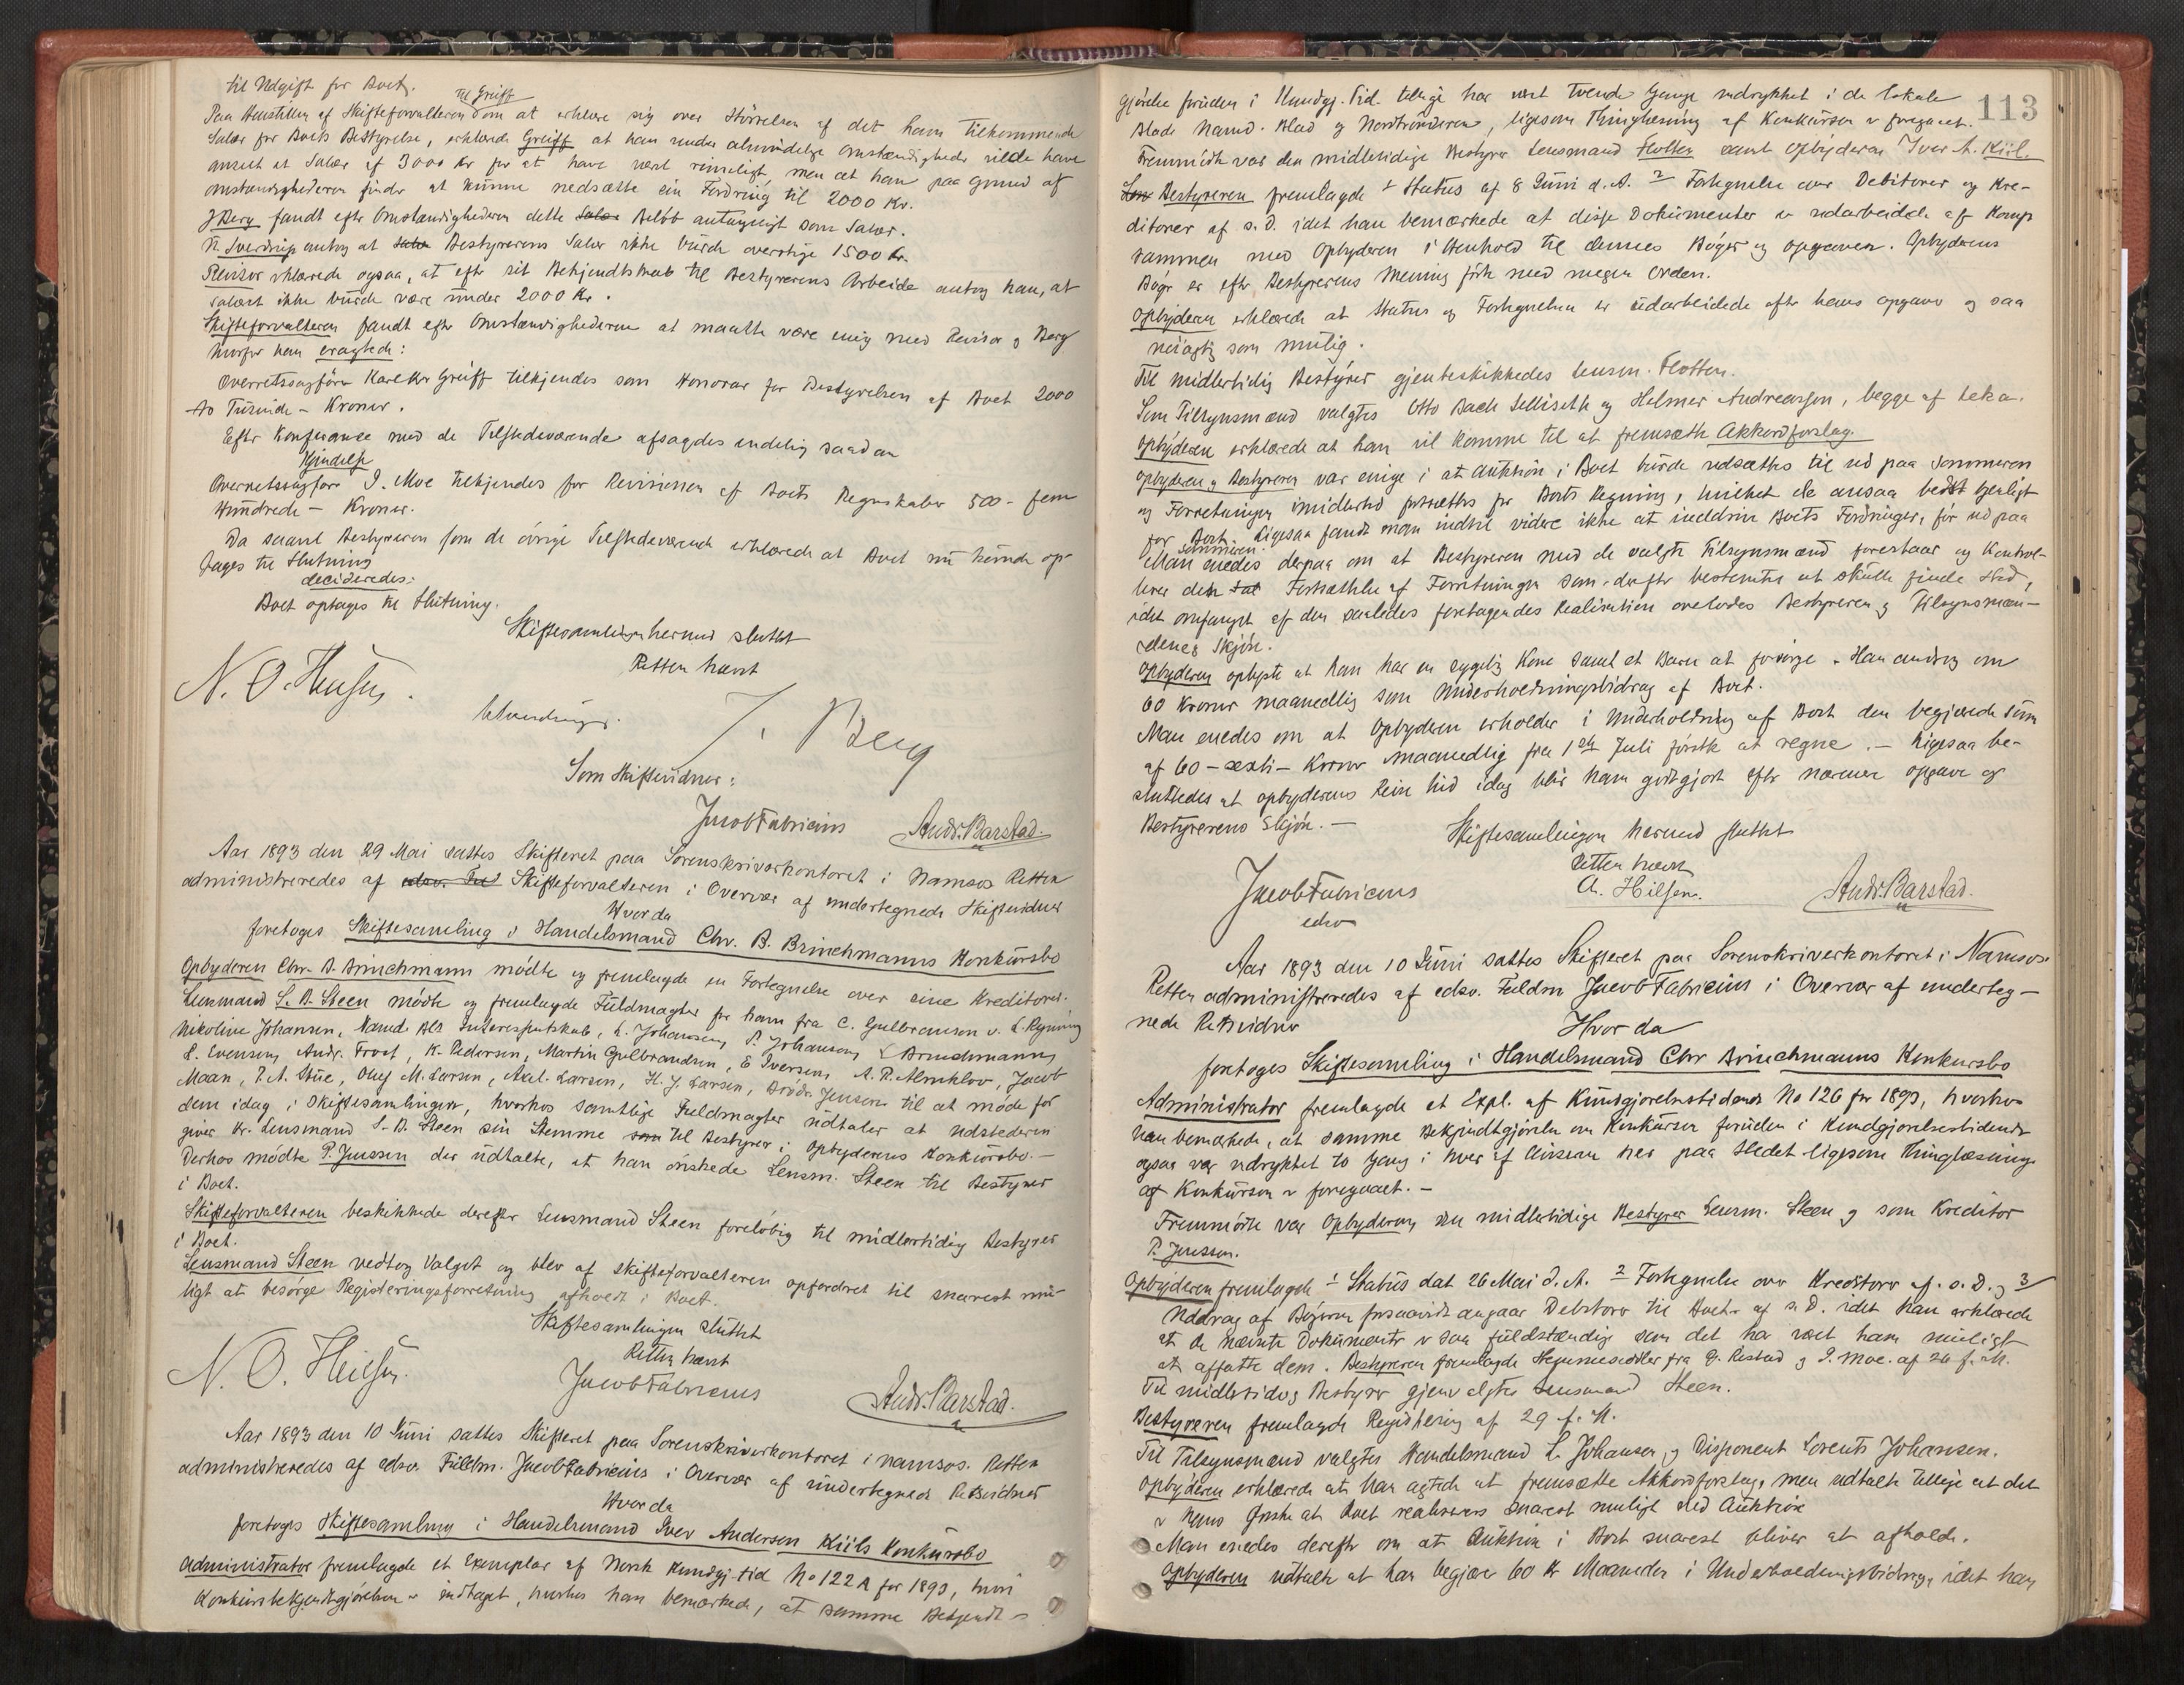 til Udgift for Boet.
Paa Henstillen af Skifteforvalteren om til Greiff at erklære sig over Størrelsen af det ham tilkommende
Salær for Boets Bestyrelse, erklærede Greiff at han under almindelige Omstændigheder vilde have
anseet et Salær af 3000 Kr for at have været rimeligt, men at han paa Grund af
Omstændighederne finder at kunne nedsætte sin Fordring til 2000 Kr.
J Berg fandt efter Omstændighederne dette Salær Beløb antageligt som Salær.
N. Sverdrup antog at Salær Bestyrerens Salær ikke burde overstige 1500 Kr.
Revisor erklærede ogsaa, at efter sit Bekjendtskab til Bestyrerens Arbeide antog han, at
salæret ikke burde være under 2000 Kr.
Skifteforvalteren fandt efter Omstændighederne at maatte være enig med Revisor og Berg
hvorfor han eragtede:
Overretssagfører Karl Greiff tilkjendes som Honorar for Bestyrelsen af Boet 2000
- to Tusinde - Kroner.
Efter Konferance med de Tilstedeværende afsagdes endelig saadan
Kjendelse
Overretssagfører J. Moe tilkjendes for Revisionen af Boets Regnskaber 500 - fem
Hundrede - Kroner.
Da saavel Bestyreren som de øvrige Tilstedeværende erklærede at Boet nu kunde op-
tages til Slutning
decideredes:
Boet optages til Slutning.
Skiftesamlingen hermed sluttet
Retten hævet
N. O. Hilsen.
J. Berg
Som Skiftevidner:
Jacob Fabricius Andr. Barstad.
Aar 1893 den 29 Mai sattes Skifteret paa Sorenskriverkontoret i Namsos Retten
administreredes af edsv. Ful Skifteforvalteren i Overvær af undertegnede Skiftevidner
Hvor da
foretoges Skiftesamling i Handelsmand Chr. B. Brinchmanns Konkursbo
Opbyderen Chr. B. Brinchmann mødte og fremlagde en Fortegnelse over sine Kreditorer.
Lensmand S. B. Steen mødte og fremlagde Fuldmagter for ham fra C. Gulbransen v. L. Rynning
Nikoline Johansen, Namd. Interessentskab, L. Johansen, P. Johansen, L Brinchmann,
L. Evensen, Andr. Frost, K. Pedersen, Martin Gulbrandsen, E Iversen, A. R. Almklov, Jacob
Maan, P. A. Stue, Oluf M. Larsen, Axel Larsen, H. J. Larsen, Brødr. Jensen til at møde for
dem idag i Skiftesamlingen, hvorhos samtlige Fuldmagter udtaler at Udstederen
giver Hr. Lensmand S. B. Steen sin Stemme som til Bestyrer i Opbyderens Konkursbo. -
Derhos mødte P. Jenssen der udtalte, at han ønskede Lensm. Steen til Bestyrer
i Boet.
Skifteforvalteren beskikkede derefter Lensmand Steen foreløbig til midlertidig Bestyrer
i Boet.
Lensmand Steen vedtog Valget og blev af Skifteforvalteren opfordret til snarest mu-
ligt at besørge Registreringsforretning afholdt i Boet.
Skiftesamlingen sluttet
Retten hævet
N. O. Hilsen. Jacob Fabricius Andr. Barstad.
Aar 1893 den 10 Juni sattes Skifteret paa Sorenskriverkontoret i Namsos. Retten
administreredes af edsv. Fuldm. Jacob Fabricius i Overvær af undertegnede Retsvidner
Hvor da
foretoges Skiftesamling i Handelsmand Iver Andersen Kiils Konkursbo
Administrator fremlagde et Exemplar af Norsk Kundgj. tid No 122 A for 1893, hvori
Konkursbekjendtgjørelsen er indtaget, hvorhos han bemærkede, at samme Bekjendt-
113
gjørelse foruden i Kundgj. Tid. tillige har vært tvende Gange indrykket i de lokale
Blade Namd. Blad og Nordtrønderen, ligesom Thinglæsning af Konkursen er foregaaet.
Fremmødte var den midlertidige Bestyrer Lensmand Flotten samt Opbyderen Iver A. Kiil.
Len Bestyreren fremlagde 1 Status af 8 Juni d. A. 2 Fortegnelse over Debitorer og Kre-
ditorer af s. D. idet han bemærkede at disse Dokumenter er udarbeidede af ham
sammen med Opbyderen i Henhold til dennes Bøger og opgaver. Opbyderens
Bøger er efter Bestyrerens Mening ført med megen Orden.
Opbyderen erklærede at Status og Fortegnelsen er udarbeidede efter hans opgaver og saa
nøiagtig som mulig.
Til midlertidig Bestyrer gjenbeskikkedes Lensm. Flotten.
Som Tilsynsmænd valgtes Otto Bach Selliseth og Helmer Andreassen, begge af Leka.
Opbyderen erklærede at han vil komme til at fremsætte Akkordforslag.
Opbyderen og Bestyreren var enige i at Auktion i Boet burde udsættes til ud paa Sommeren
og Forretningen imidlertid fortsættes for Boets Regning, hvilket de ansaa bedst tjenligt
for Boet. Ligesaa fandt man indtil videre ikke at inddrive Boets Fordringer, før ud paa
Sommeren.
Man enedes derpaa om at Bestyreren med de valgte Tilsynsmænd forestaar og kontrol-
lerer den Fortsættelse af Forretningen som derefter bestemtes at skulle finde Sted,
idet omfanget af den saaledes foretagendes Realisation overlodes Bestyreren og Tilsynsmæn-
denes Skjøn.
Opbyderen oplyste at han har en sygelig Kone samt et Barn at forsørge. Han androg om
60 Kroner maanedlig som Underholdningsbidrag af Boet.
Man enedes om at Opbyderen erholder i Underholdning af Boet den begjærede Sum
af 60 - sexti - Kroner maanedlig fra 1ste Juli førstk. at regne. - Ligesaa be-
sluttedes at opbyderens Reise hid idag blir ham godtgjort efter nærmere opgave og
Bestyrerens Skjøn. -
Skiftesamlingen hermed sluttet
Retten hævet
Jacob Fabricius A. Hilsen. Andr. Barstad.
edsv
Aar 1893 den 10 Juni sattes Skifteret paa Sorenskriverkontoret i Namsos.
Retten administreredes af edsv. Fuldm Jacob Fabricius i Overvær af underteg-
nede Retsvidner
Hvor da
foretoges Skiftesamling i Handelsmand Chr Brinchmanns Konkursbo
Administrator fremlagde et Expl. af Kundgjørelsestidende No 126 for 1893, hvorhos
han bemærkede, at samme Bekjendtgjørelse om Konkursen foruden i Kundgjørelsestidende
ogsaa var indrykket to Gang i hver af Aviserne her paa Stedet ligesom Thinglæsning
af Konkursen er foregaaet. -
Fremmødte var Opbyderen, den midlertidige Bestyrer Lensm. Steen og som Kreditor
P. Jenssen.
Opbyderen fremlagde 1 Status dat 26 Mai d. A. 2 Fortegnelse over Kreditorer af s. D. og 3
Uddrag af Bøgerne forsaavidt angaar Debitorer til Boet af s. D. idet han erklærede
at de nævnte Dokumenter er saa fuldstændige som det har vært ham muligt
at affatte dem. Bestyreren fremlagde Hegnmesedler fra G. Ristad og J. Moe. af 26 f. M.
Til midlertidig Bestyrer gjenvalgtes Lensmand Steen.
Bestyreren fremlagde Registrering af 29 f. M.
Til Tilsynsmænd valgtes Handelsmand L. Johansen, og Disponent Lorents Johansen.
Opbyderen erklærede at han agtede at fremsætte Akkordforslag, men udtalte tillige at det
er hans Ønske at Boet realiseres snarest muligt ved Auktion
Man enedes derefter om at Auktion i Boet snarest bliver at afholde.
Opbyderen udtalte at han begjærer 60 Kr Maaneden i Underholdningsbidrag, idet han